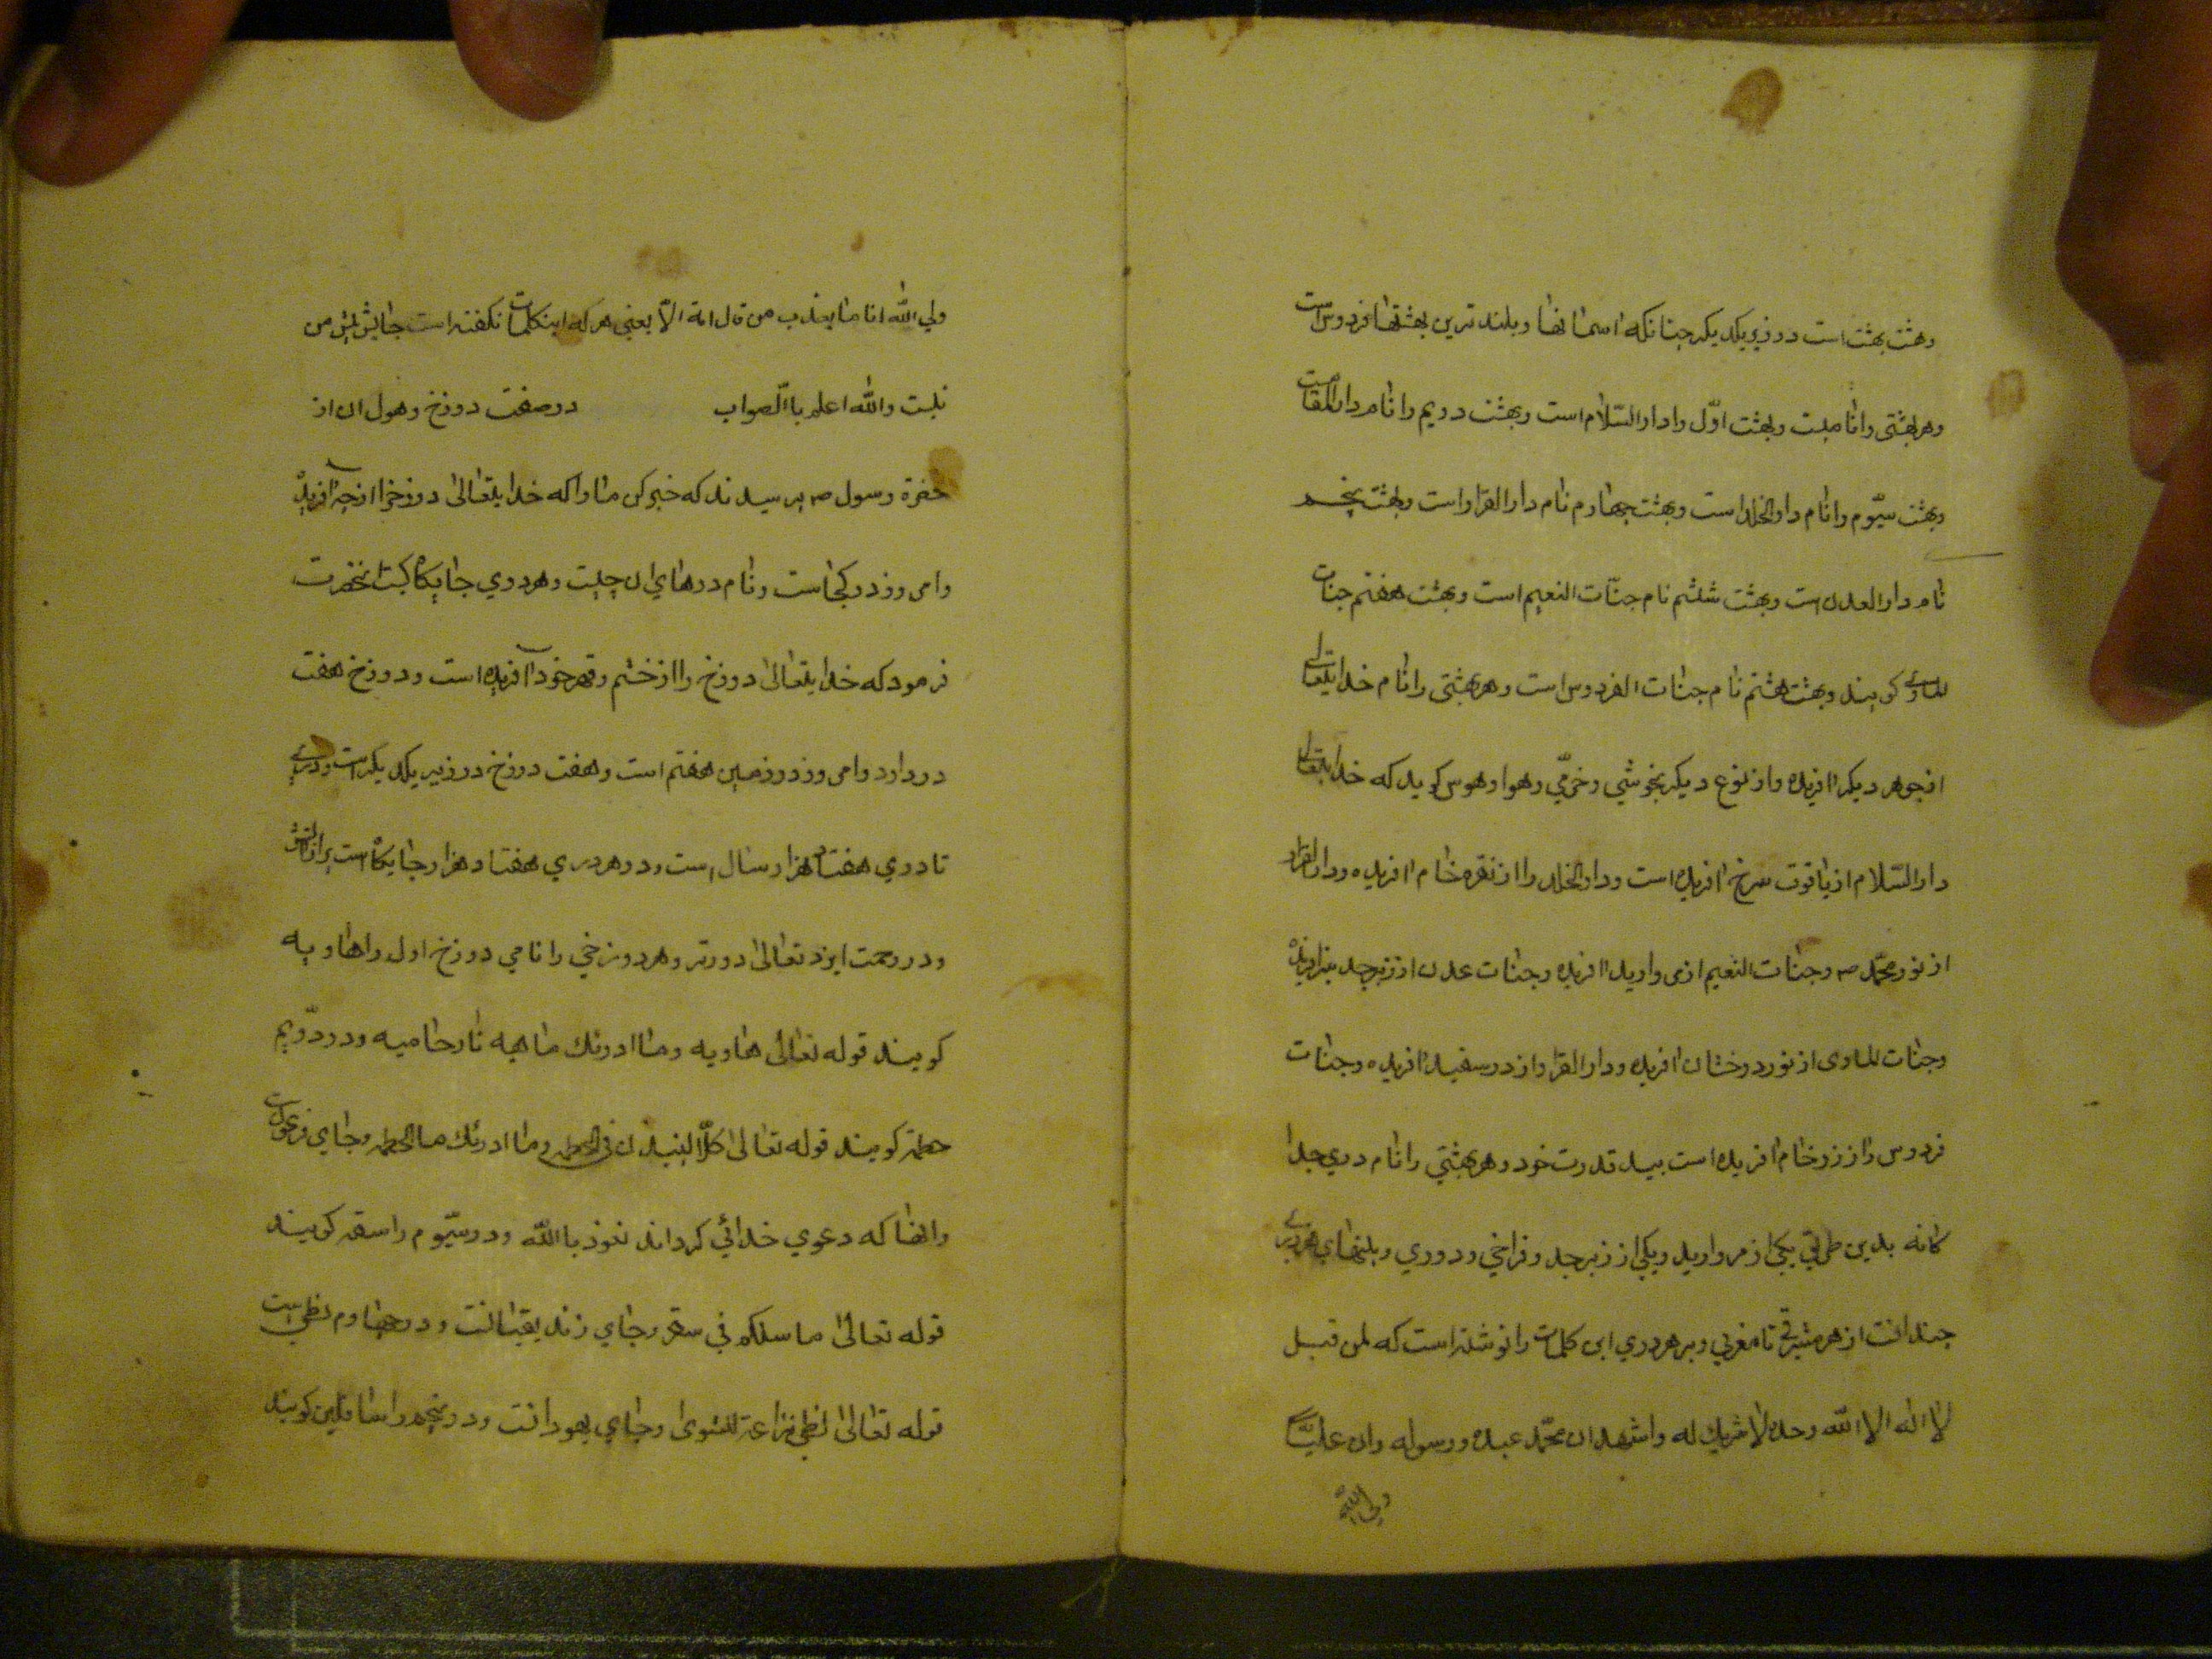 وهشت بهشت است در زیر یکدیکر چنانکه اسمانها و بلند ترین بهشتها فردوس است
وهر بهشتی را نامیست و بهشت اوّل را دار السّلام است و بهشت دویم را نام دار المقامست
و بهشت سیّوم را نام دار الخلد است و بهشت چهارم نام دار القرار است و بهشت پنجم
نام دار العدن است و بهشت ششم نام جنّات النعیم است و بهشت هفتم جنات
الماوی کویند و بهشت هشتم نام جنات الفردوس است و هر بهشتی را نام خدایتعالی
از جوهر دیکر افریده و از نوع دیکر بخوشی و خرّمی و هوا و هوس کوید که خدایتعالی
دار السّلام از یاقوت سرخ افریده است و دار الخلد را از نقره خام افریده و دار القرار
از نور محمّد صم و جنات النعیم از مروارید افریده و جنات عدن از زبرجد سبز افریده
و جنات الماوی از نور درخشان افریده و دار القرار از در سفید افریده و جنات
فردوس را از زر خام افریده است بید قدرت خود و هر بهشتی را نام دری جدا
کانه بدین طریق یکی از مروارید و یکی از زبرجد و فراخی و دوری و بلندهای هر دری
چندانست از هر مشرقی تا مغربی و بر هر دری این کلمات را نوشته است که لمن قبل
لا اله الا الله وحده لا شریك له و اشهد ان محمّد عبده و رسوله و ان علیّا
ولی الله
ولی الله انا ما یعذب من قال امة الّا یعنی هر که اینکلمات نکفته است جایش پیش من
نیست و الله اعلم باالّصواب در صفت دوزخ و هول ان از
حضرة رسول صم پرسیدند که خبر کن ما را که خدایتعالی دوزخ را از چه افریده
وامروز در کجاست و نام درهای ان چیست و هر دری جایکاه کیست انحضرت
فرمود که خدایتعالی دوزخ را از خشم و قهر خود افریده است و دوزخ هفت
در دارد و امروز در زمین هفتم است و هفت دوزخ در زیر یکدیکر است و دری
تا دری هفتاد هزار سال است و در هر دری هفتاد هزار جایکاه است پر از اتش
و در رحمت ایزد تعالی دورتر و هر دوزخی را نامی دوزخ اول را هاویه
کویند قوله تعالی هاویه و ما ادرئك ماهیه نار حامیه و در دوّیم
حطمه کویند قوله تعالی کلّا لینبذن فی الحطمه و ما ادرئك ما الحطمه و جای فرعون است
و انها که دعوی خدائی کرداند نعوذ باالله و در سیّوم را سقر کویند
قوله تعالی ما سلککم فی سقر و جای زندیقیانست و در چهارم لظی است
قوله تعالی لظی نزاعة للشوی و جای یهودانست و در پنجم را سافلین کویند